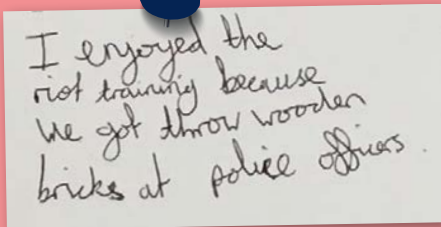 I enjoyed the
riot training because
we got throw wooden
bricks at police officers.